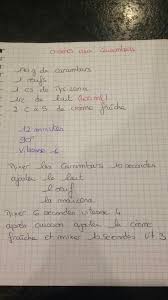 crèmes aux carambars
140 g de carambars
1 oeufs
1 cs de maïzena
de lait
2 c à s de crème fraîche
12 minutes
90°
vitesse 4
Mixer les carambars 10 secondes
ajouter le lait
l'oeuf
la maïzena
Mixer 5 secondes vitesse 4
après cuisson ajouter la crème
fraîche et mixer 10 secondes vit 3